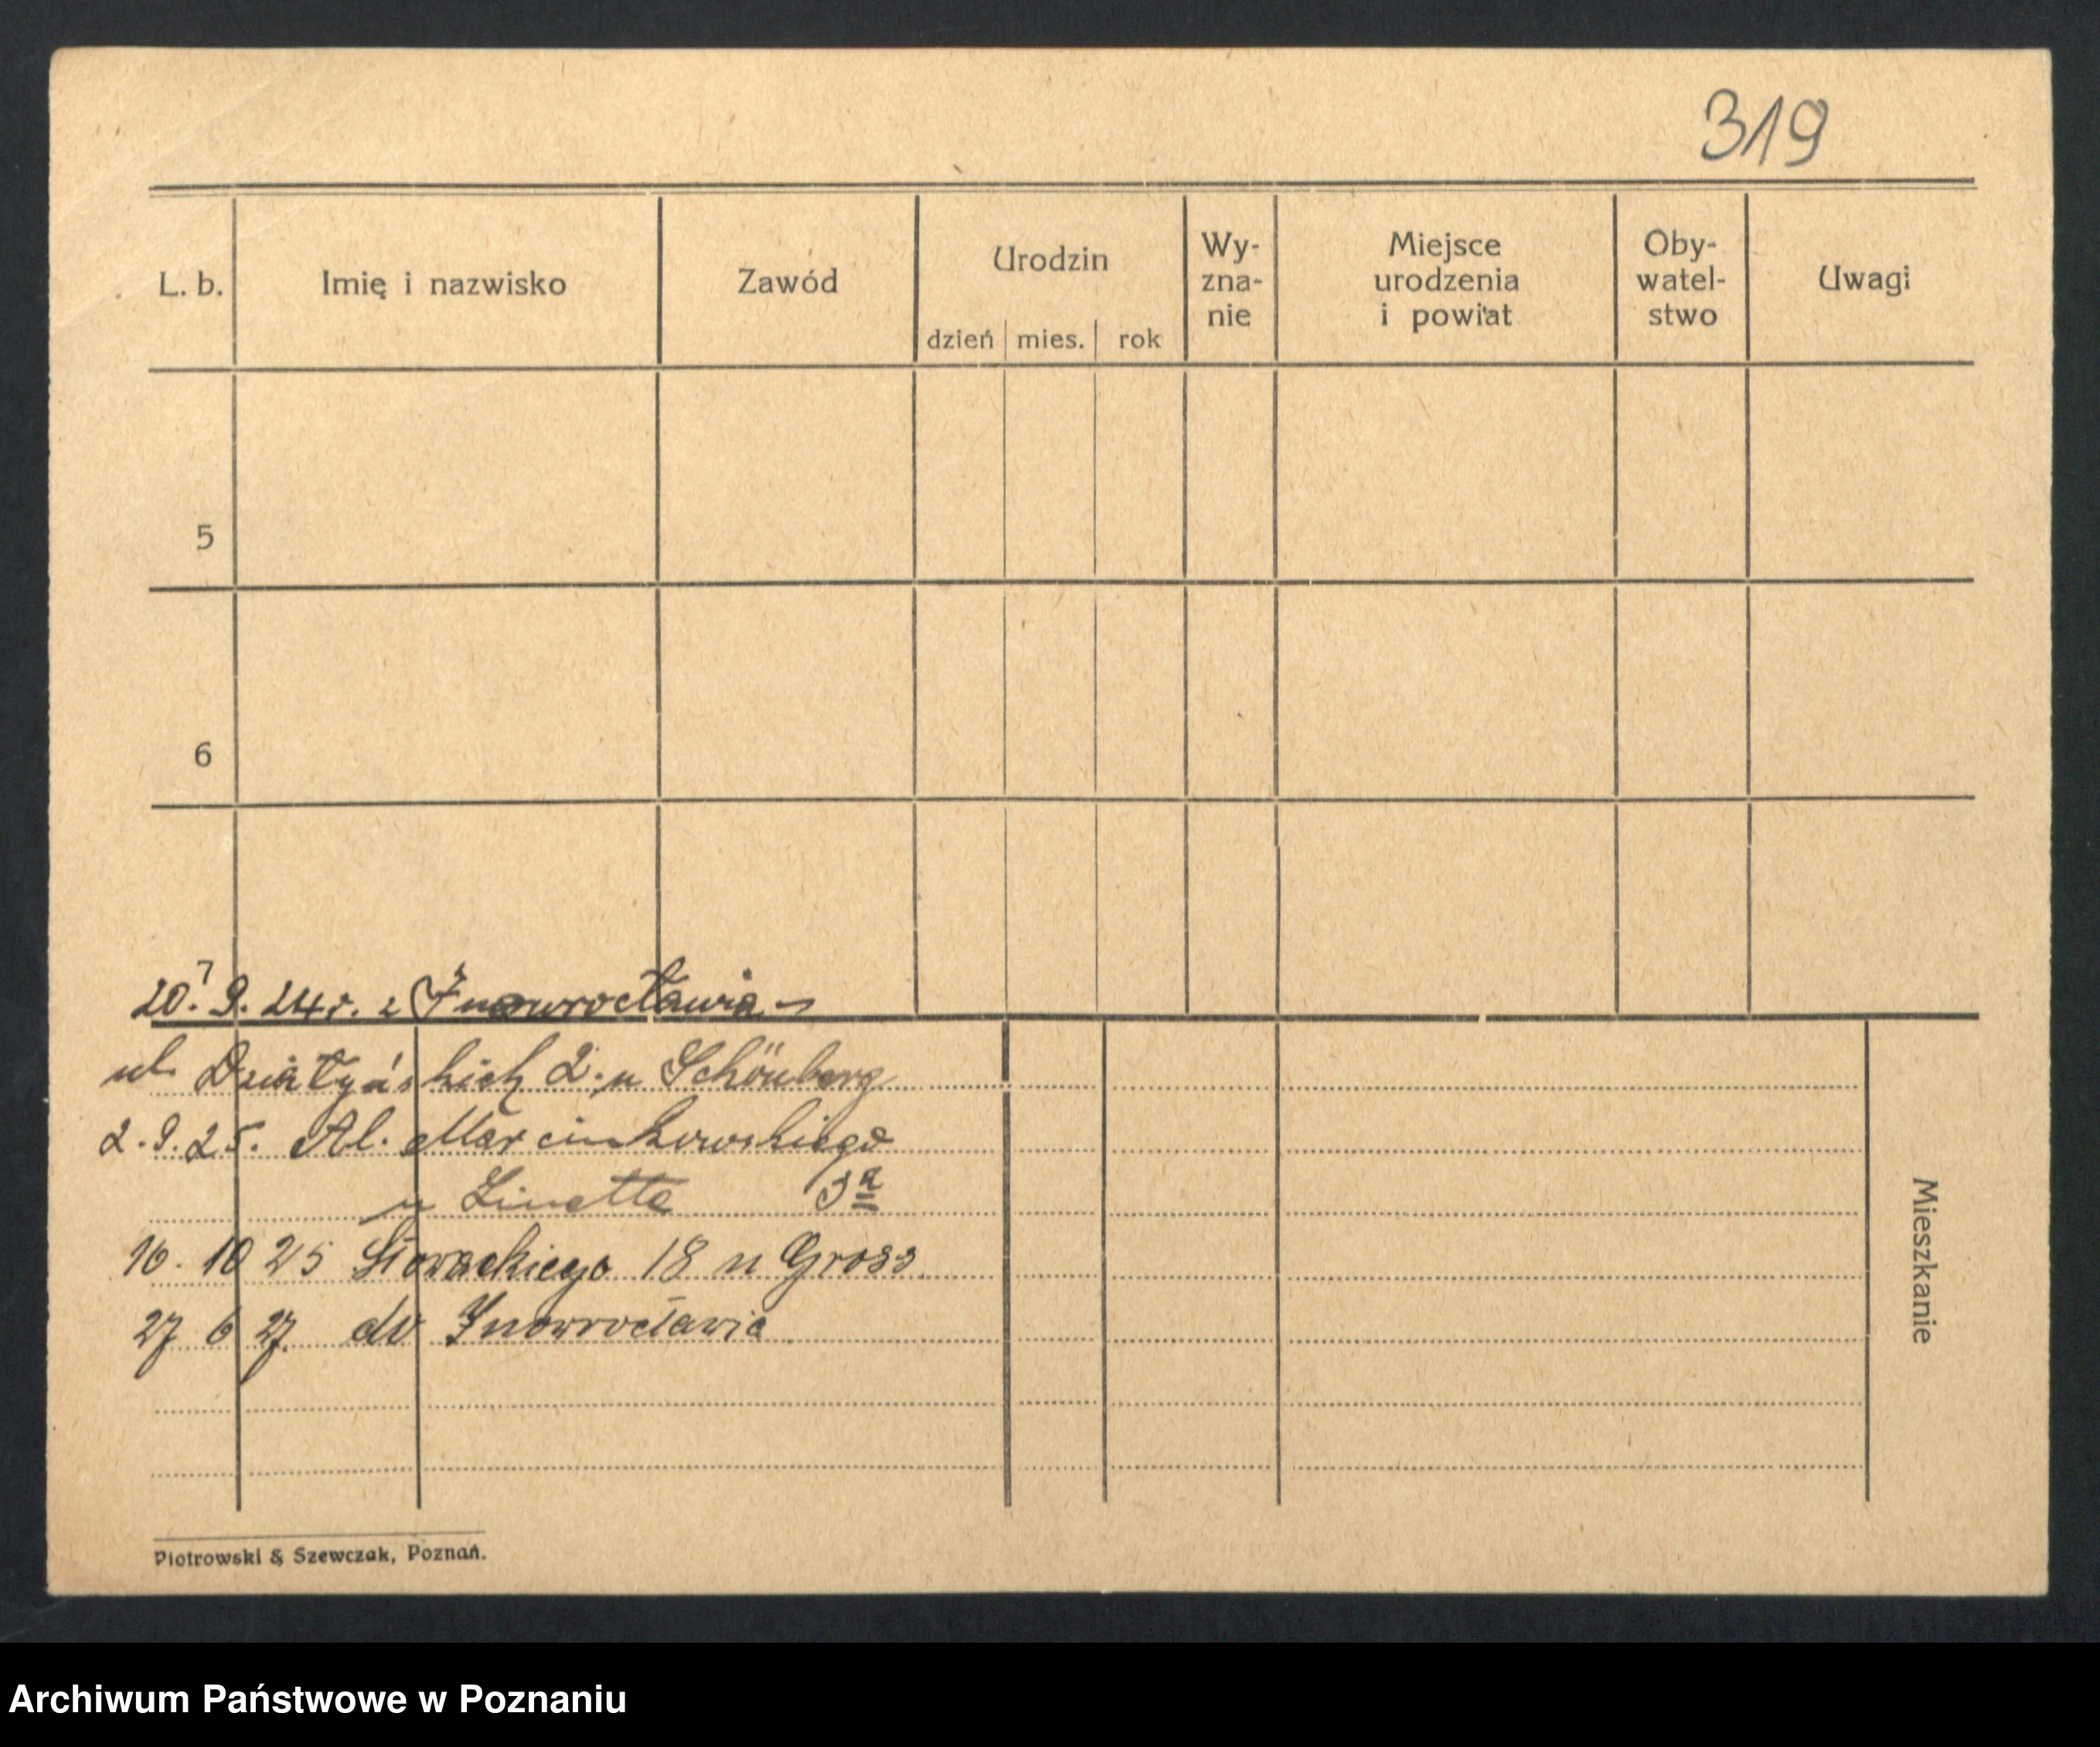 319
L. b. Imię i nazwisko Zawód Urodzin dzień mies. rok Wy-zna-nie Miejsce urodzenia i powiat Oby-watel-stwo Uwagi
5
6
20. 7 9. 24 r. z Inowrocławia -
ul. Działyńskich 2. u Schönberg
2. 9. 25. Al. Marcinkowskiego
u Linette 3a
16. 10 25 Słowackiego 18 u Gross
27 6 27. do Inowrocławia
Mieszkanie
Piotrowski & Szewczak, Poznań.
Archiwum Państwowe w Poznaniu